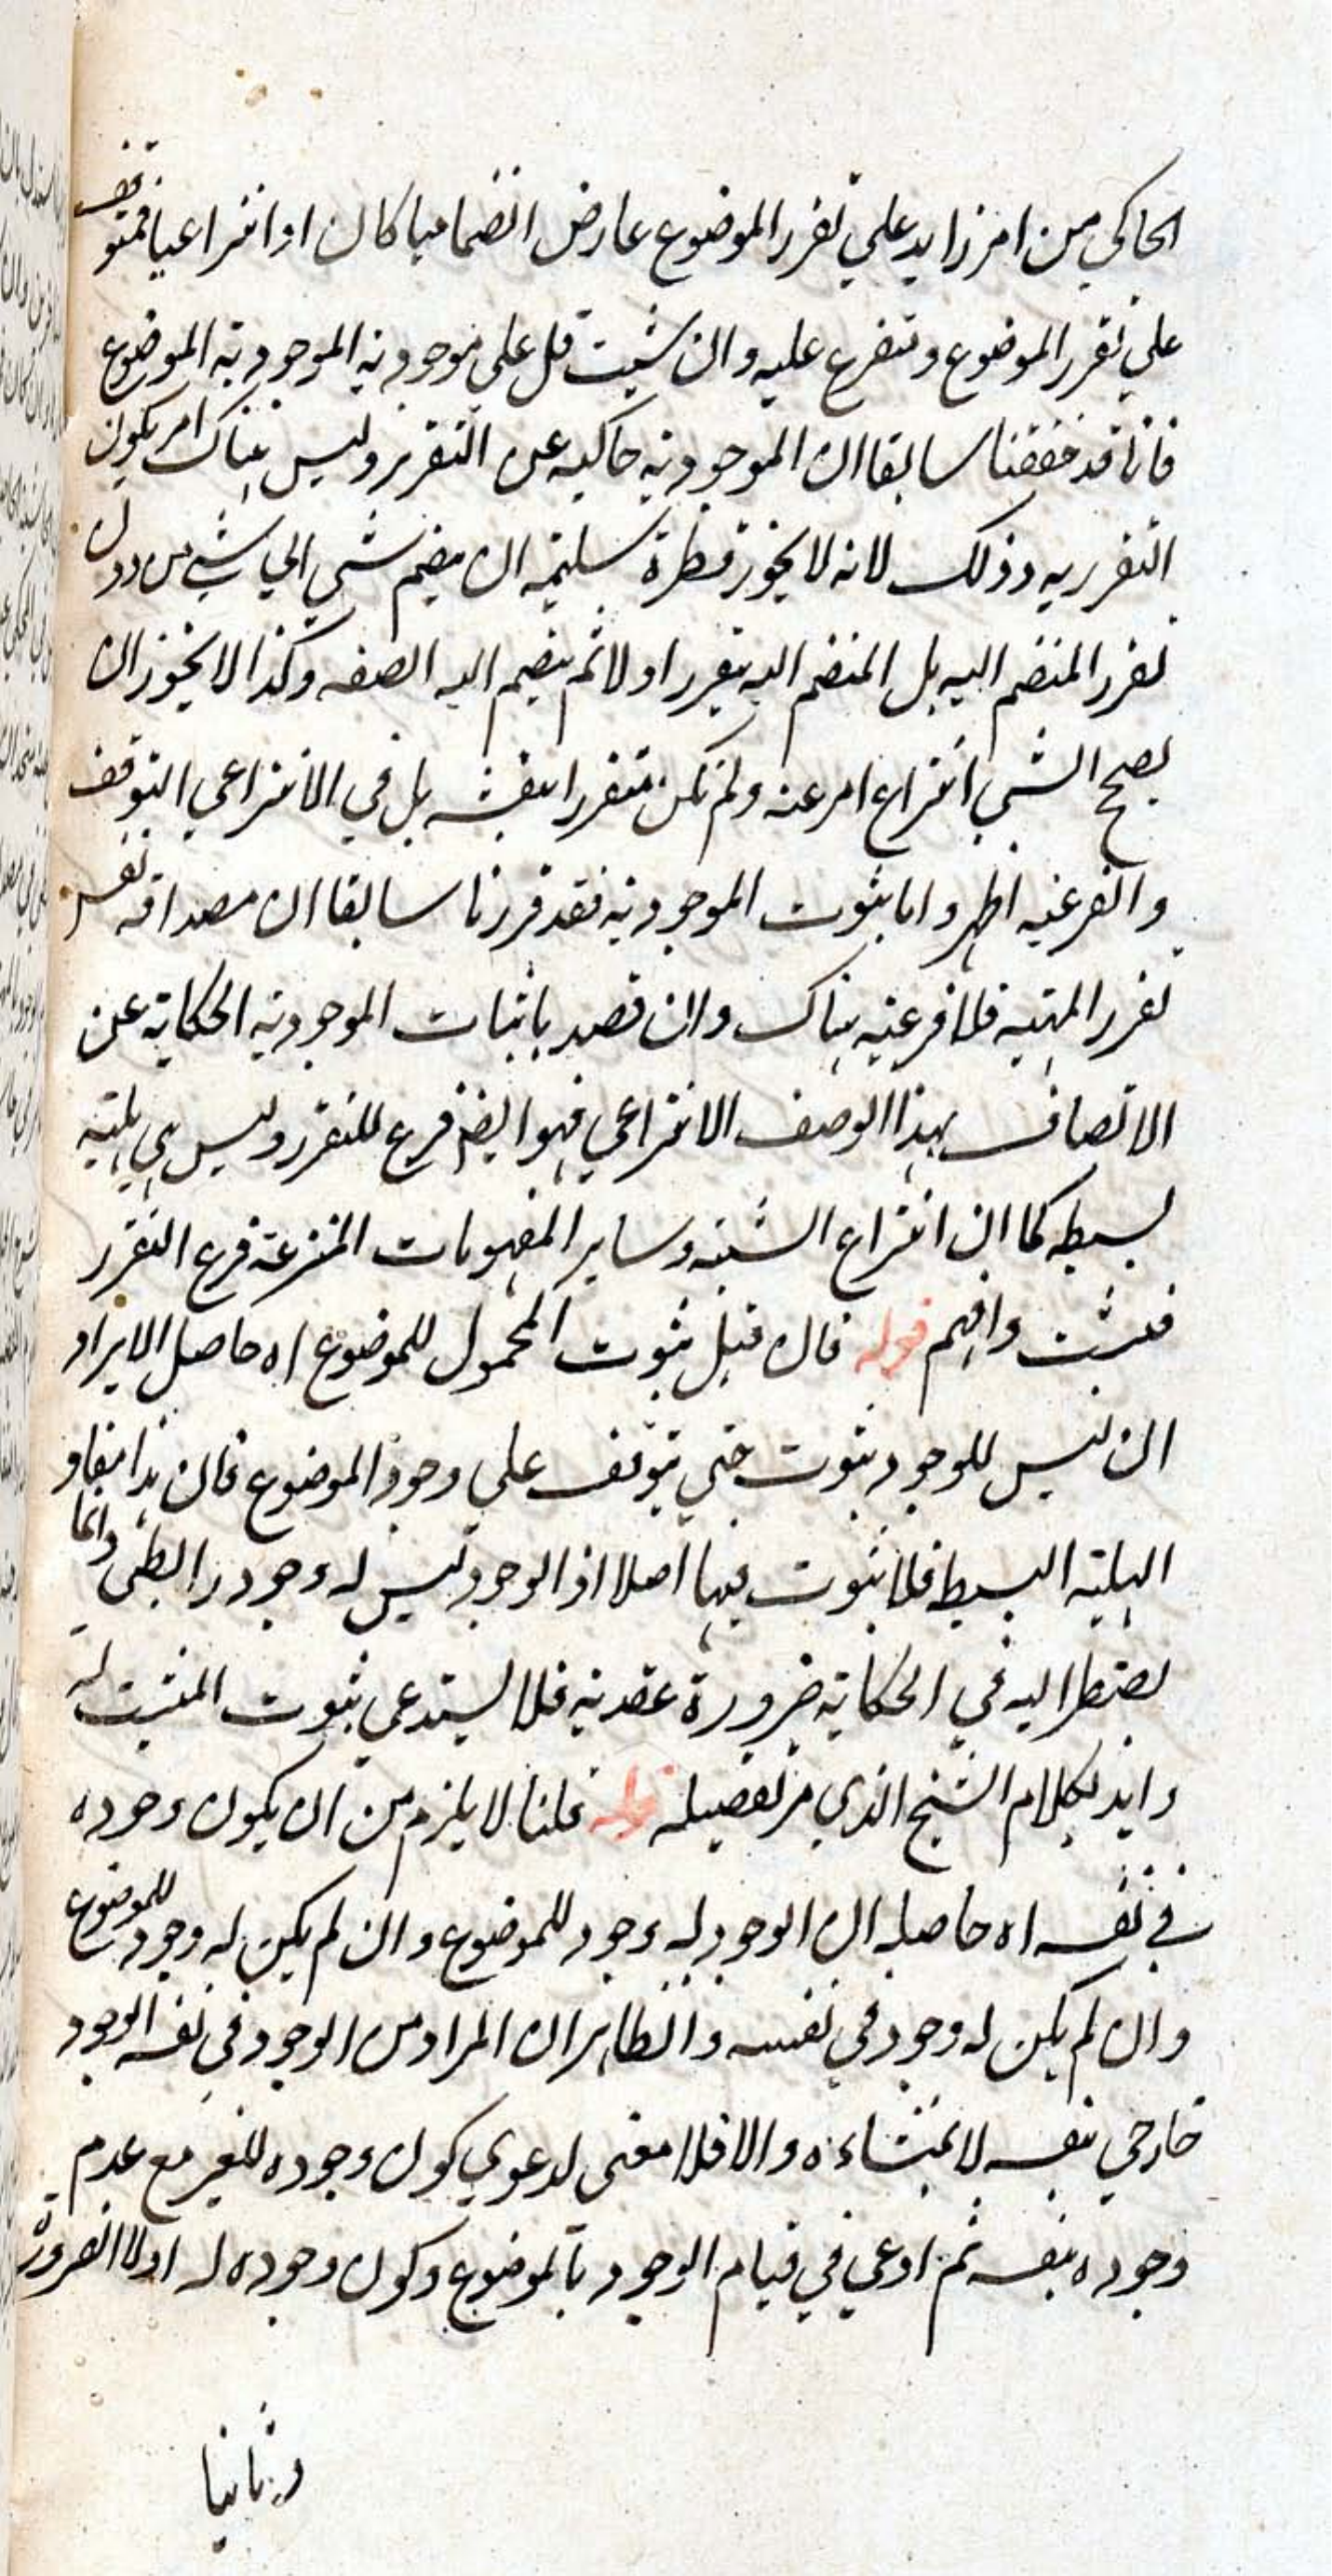 الحاكي من امر زايد علي تقرر الموضوع عارض انضماميا كان او انتزاعيا فمتوقف
علي تقرر الموضوع ومتفرع عليه وان شيت قل علي موجودية الموجودية الموضوع
فانا قد حققنا سابقا ان الموجودية حاكيه عن التقرر وليس هناك امر يكون
التقرريه وذلك لانه لا يجوز فطرة سليمة ان ينضم شي الي شي من دون
تقرر المنضم اليه بل المنضم اليه يتقرر اولا ثم ينضم اليه الصفه وكذا لا يجوز ان
يصح الشي انتزاع امر عنه ولم يكن متقررا بنفسه بل في الانتزاعي التوقف
والفرعيه اظهر واما ثبوت الموجودية فقد قررنا سابقا ان مصداقه نفس
تقرر المهية فلا فرعية هناك وان قصد باثبات الموجودية الحكاية عن
الاتصاف بهذا الوصف الانتزاعي فهو ايضا فرع للتقرر وليس هي هلية
بسيطه كما ان انتزاع الشيئيه وساير المفهومات المنتزعة فرع التقرر
فتثبت وافهم قوله قال قيل ثبوت المحمول للموضوع اه حاصل الايراد
ان ليس للوجود ثبوت حتي يتوقف علي وجود الموضوع فان هذا مفاد
الهلية البسيطة فلا ثبوت فيها اصلا اذ الوجود ليس له وجود رابطي وانما
يضطر اليه في الحكاية ضرورة عقدية فلا يستدعي ثبوت المثبت له
وايد بكلام الشيخ الذي مر تفصيله قوله قلنا لا يلزم من ان يكون وجوده
في نفسه اه حاصله ان الوجود له وجود للموضوع وان لم يكن له وجود للموضوع
وان لم يكن له وجود في نفسه والظاهر ان المراد من الوجود في نفسه الوجود
خارجي بنفسه لا بمنشاءه والا فلا معني لدعوي كون وجوده للغير مع عدم
وجوده بنفسه ثم ادعي في قيام الوجود بالموضوع وكون وجوده له اولا الضرورة
وثانيا